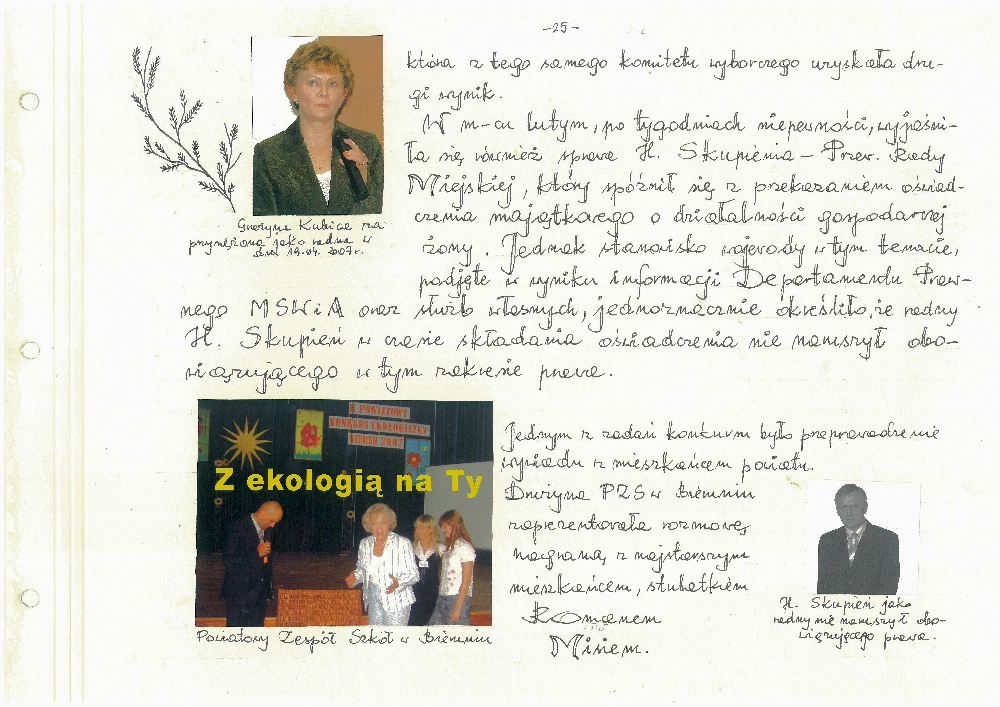 -25-
która z tego samego komitetu wyborczego uzyskała dru-
gi wynik.
W m-cu lutym, po tygodniach niepewności, wyjaśni-
ła się również sprawa H. Skupienia – Przew. Rady
Miejskiej, który spóźnił się z przekazaniem oświad-
czenia majątkowego o działalności gospodarczej
żony. Jednak stanowisko wojewody w tym temacie,
podjęte w wyniku informacji Departamentu Praw-
nego MSWiA oraz służb własnych, jednoznacznie określiło, że radny
H. Skupień w czasie składania oświadczenia nie naruszył obo-
wiązującego w tym zakresie prawa.
Grażyna Kubica za
przysiężona jako radna w
dniu 19.04.2007 r.
II POWIATOWY
KONKURS EKOLOGICZNY
BIERUŃ 2007
Z ekologią na Ty
Powiatowy Zespół Szkół w Bieruniu
Jednym z zadań konkursu było przeprowadzenie
wywiadu z mieszkańcem powiatu.
Drużyna PZS w Bieruniu
zaprezentowała rozmowę,
nagraną z najstarszym
mieszkańcem, stulatkiem
Romanem
Misiem.
H. Skupień jako
radny nie naruszył obo-
wiązującego prawa.